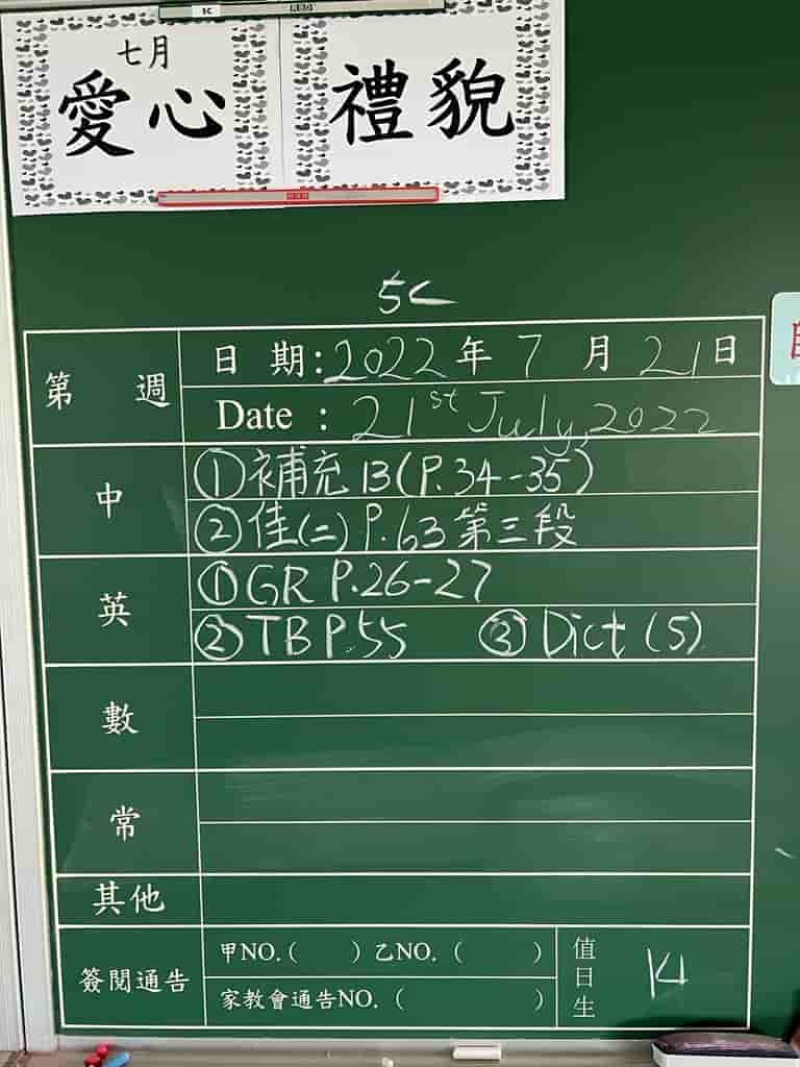 七月
愛心 禮貌
5C
第 週
日 期:2022年7月21日
Date : 21st July, 2022
中
①補充13(P.34-35)
②佳(二)P.63第三段
英
①GR P.26-27
②TB P.55 ③Dict (5)
數
常
其他
簽閱通告
甲NO.( ) 乙NO. ( )
家教會通告NO. ( )
值日生
14